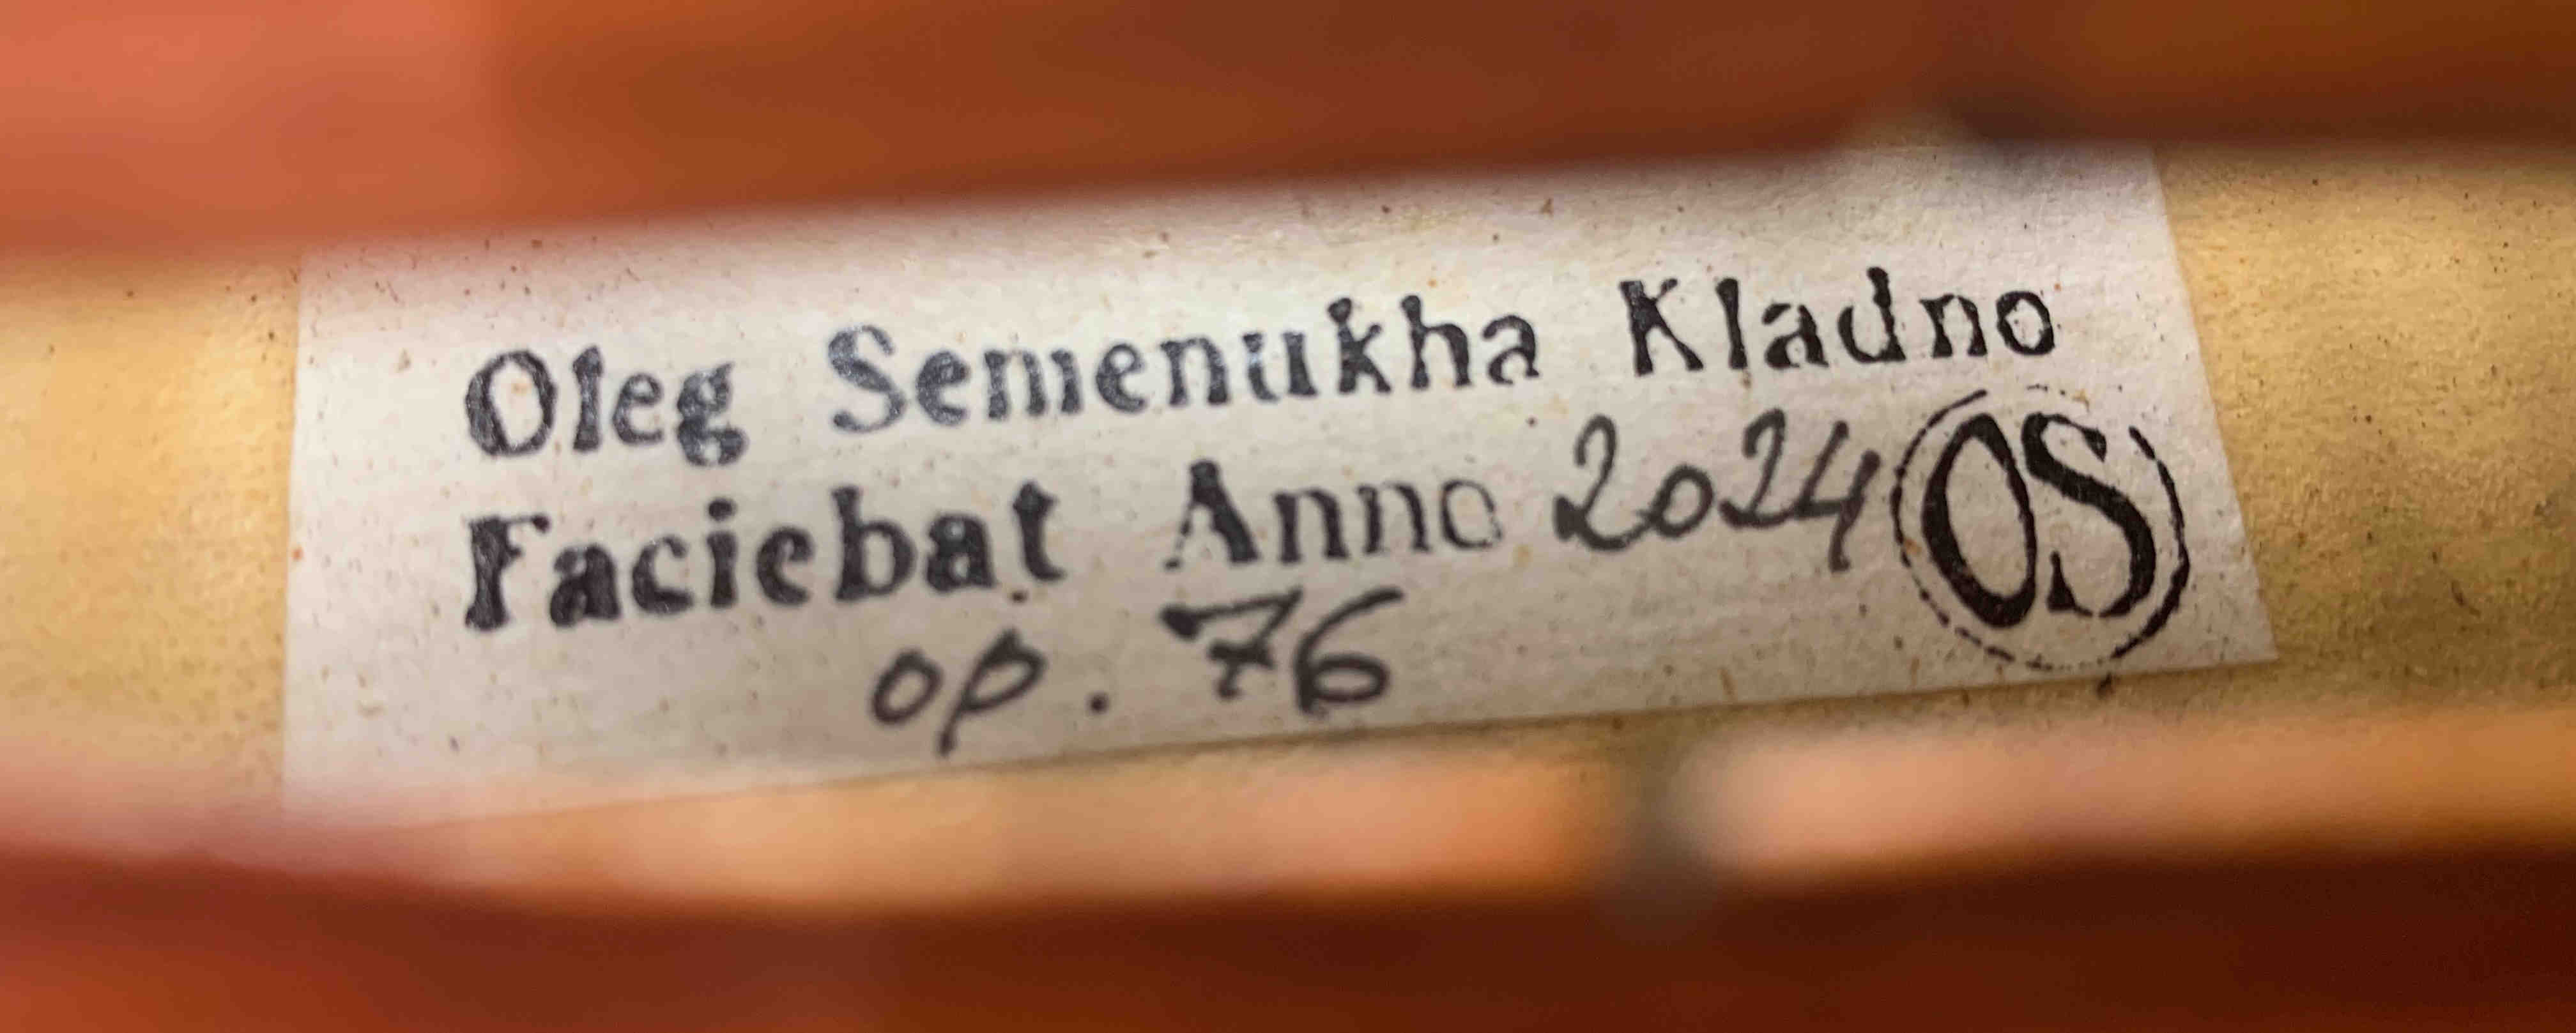 Oleg Semenukha Kladno
Faciebat Anno 2024 OS
op. 76